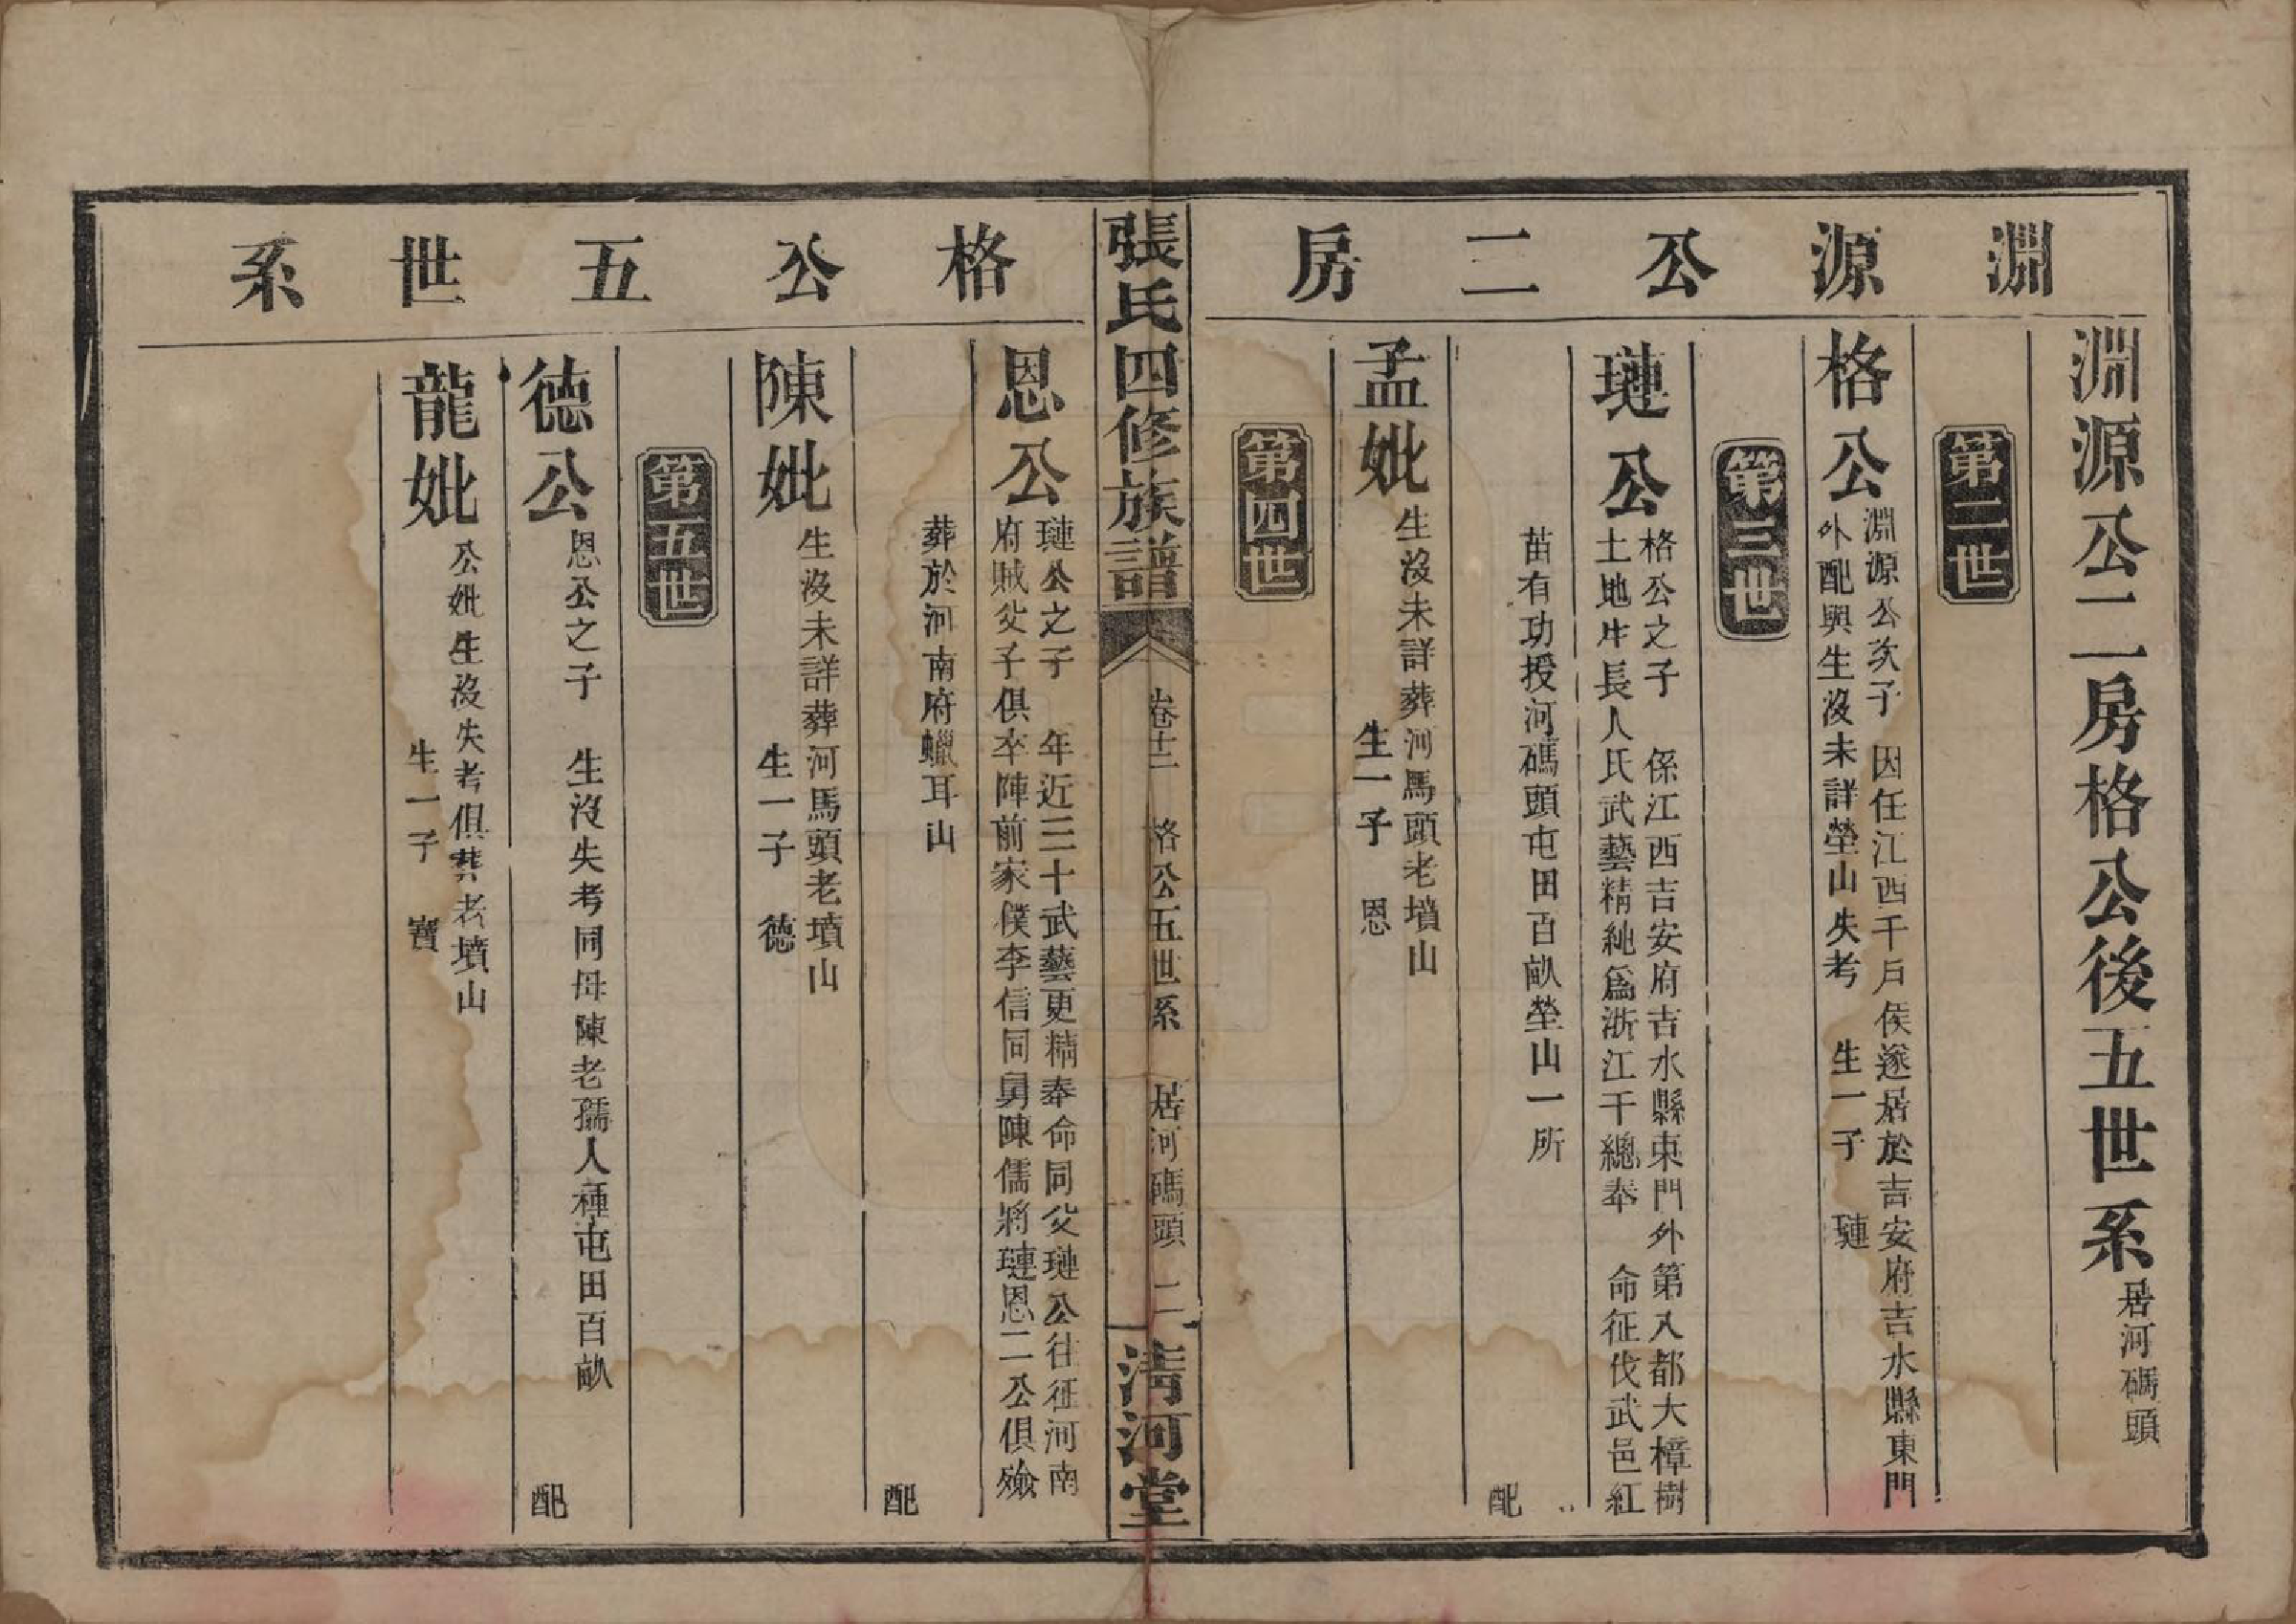 淵源公二房
淵源公二房格公後五世系 居河碼頭
第二世
格公 淵源公次子 因任江西千戶侯遂居於吉安府吉水縣東門
外配興生沒未詳塋山失考 生一子 璉
第三世
璉公 格公之子 係江西吉安府吉水縣東門外第八都大樟樹
土地生長人氏武藝精純爲浙江千總奉 命征伐武邑紅
苗有功授河碼頭屯田百畝塋山一所
配
孟妣 生沒未詳葬河馬頭老墳山
生一子 恩
第四世
張氏四修族譜 卷十二 格公五世系 居河碼頭 二 清河堂
格公五世系
恩公 璉公之子 年近三十武藝更精奉命同父璉公往征河南
府賊父子俱卒陣前家僕李信同舅陳儒將璉恩二公俱殮
葬於河南府蠟耳山
配
陳妣 生沒未詳葬河馬頭老墳山
生一子 德
第五世
德公 恩公之子 生沒失考同母陳老孺人種屯田百畝
配
龍妣 公妣生沒失考俱葬老墳山
生一子 寶